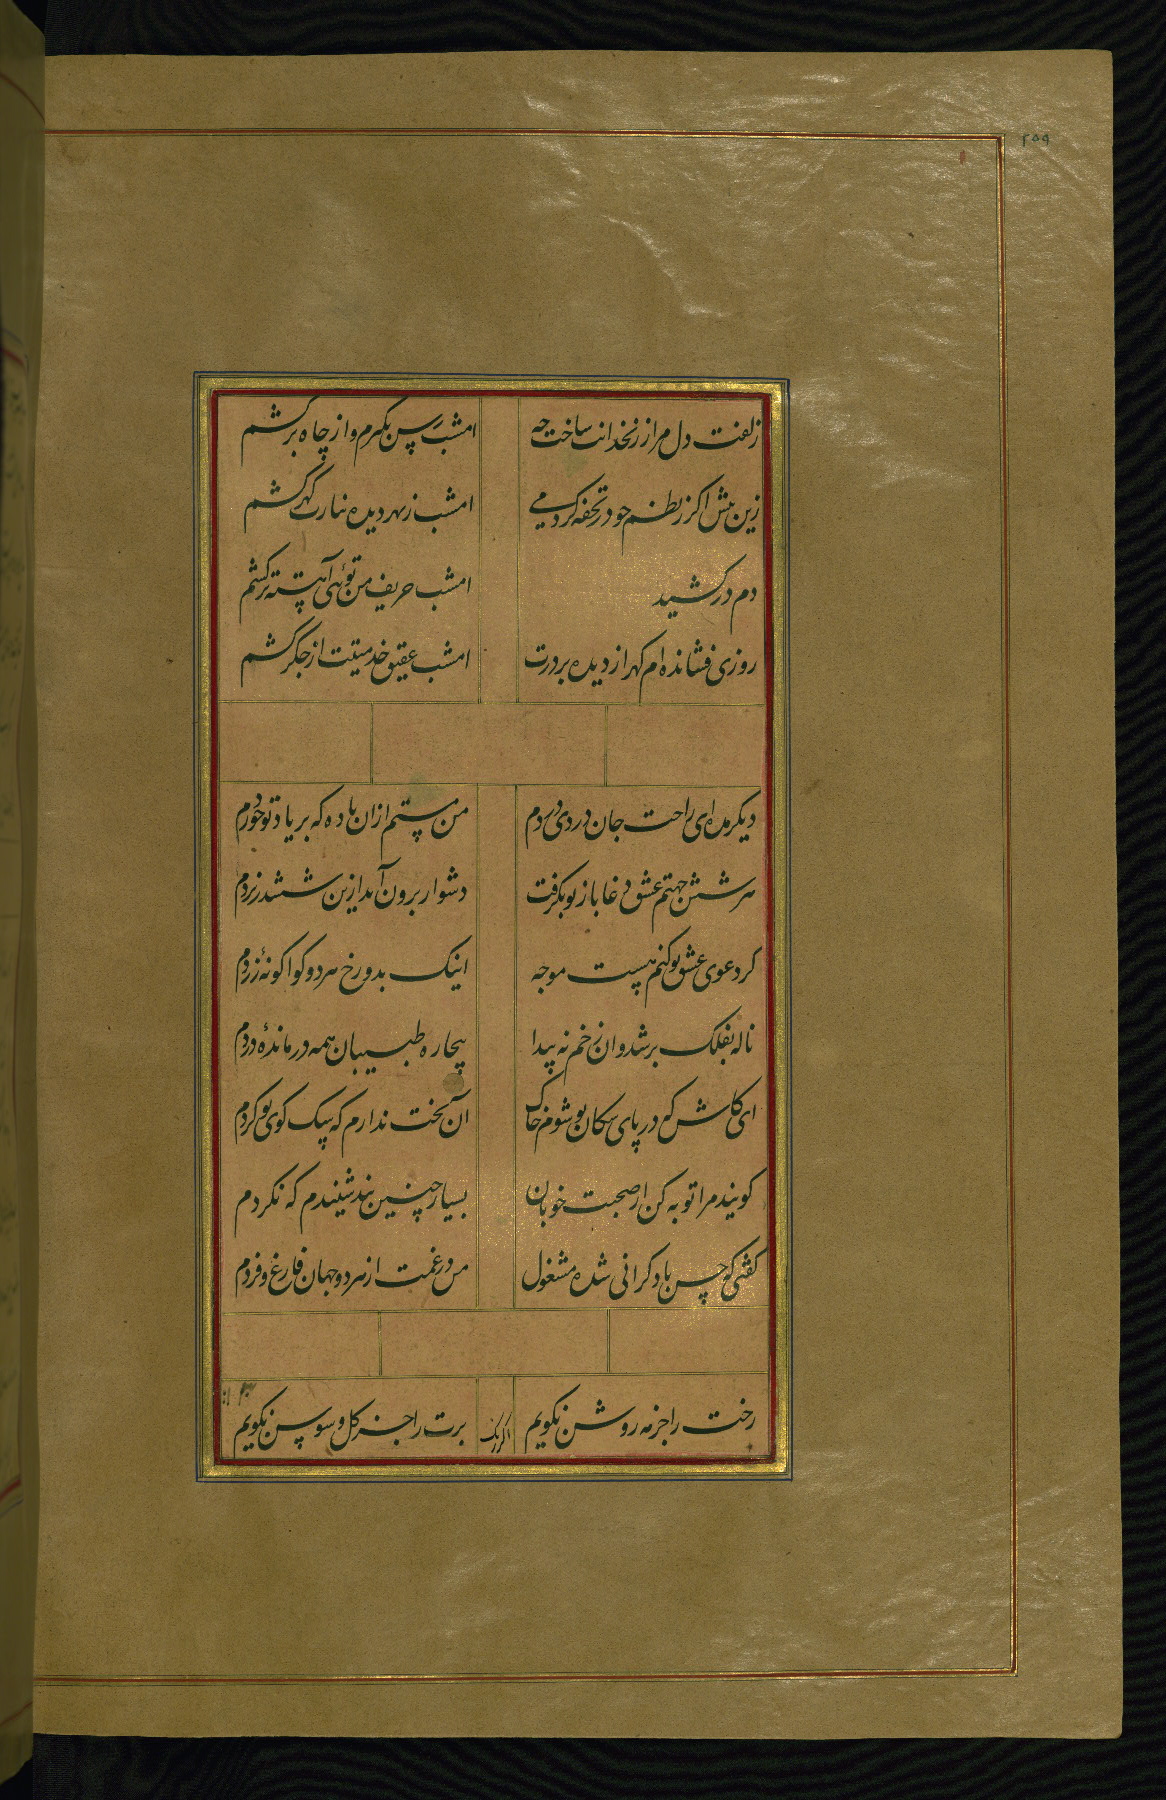 ۲۵۹
زلفت دل مرا ز زنخدانت ساخت چه
امشب رسن بگیرم و از چاه برکشم
زین پیش اگر ز نظم خودر تحفه کردمی
امشب ز بهر دیده نثارت گهر کشم
دم درکشید
امشب حریف من توئی آهسته تر کشم
روزی فشانده ام گهر از دیده بر درت
امشب عقیق خدمتیت از جگر کشم
دیگر مده ای راحت جان دردی دردم
من مستم ازان باده که بر یاد تو خوردم
هر شش جهتم عشق دغا باز تو بگرفت
دشوار برون آید ازین ششدر نردم
گر دعوی عشق تو کنم هست موجه
اینک بدو رخ هر دو گوا گونه زردم
ناله بفلک بر شد وان زخم نه پیدا
بیچاره طبیبان همه درمانده دردم
ای کاش که در پای سگان تو شوم خاک
آن بخت ندارم که سگ کوی تو گردم
گویند مرا توبه کن از صحبت خوبان
بسیار چنین پند شنیدم که نکردم
گفتی که حسن با دگرانی شده مشغول
من در غمت از هر دو جهان فارغ و فردم
رخت را جز مه روشن نگویم
برت را جز گل و سوسن نگویم